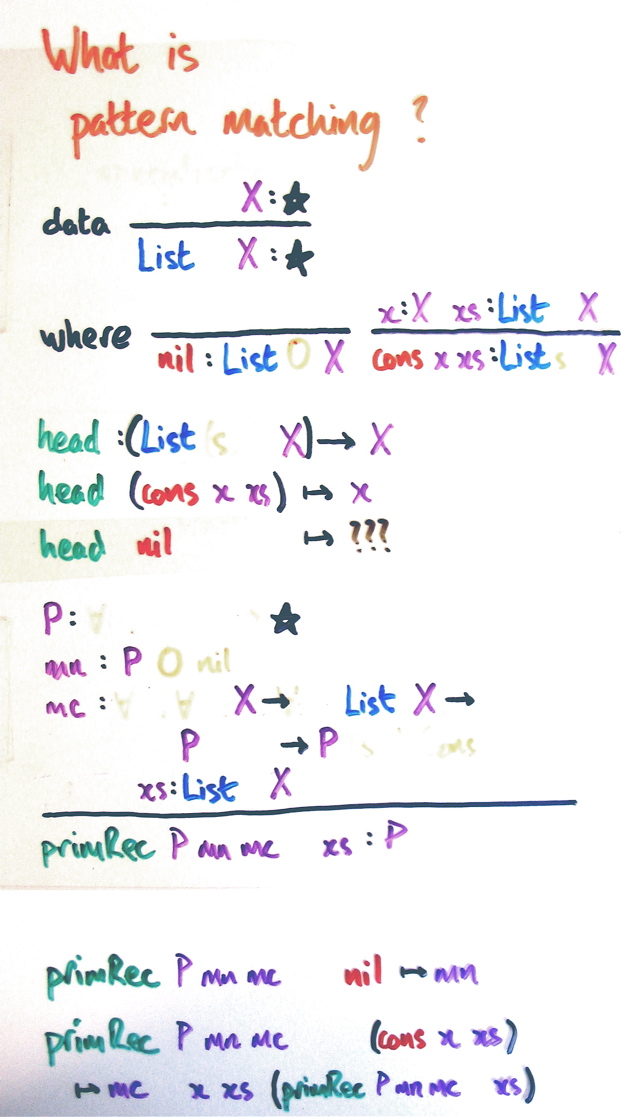 What is
pattern matching ?
data X : ★
List X : ★
where nil : List O X x : X xs : List X
cons x xs : List s X
head : (List s X) → X
head (cons x xs) ↦ x
head nil ↦ ???
P : ∀ ★
mn : P O nil
mc : ∀ ∀ X → List X →
P → P s ons
xs : List X
primRec P mn mc xs : P
primRec P mn mc nil ↦ mn
primRec P mn mc (cons x xs)
↦ mc x xs (primRec P mn mc xs)